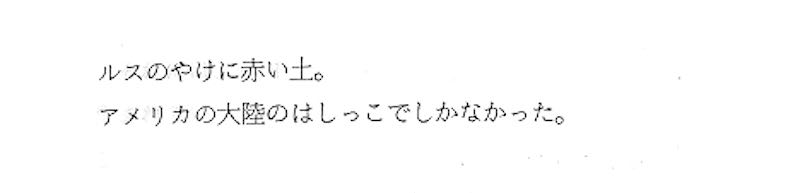 ルスのやけに赤い土。
アメリカの大陸のはしっこでしかなかった。